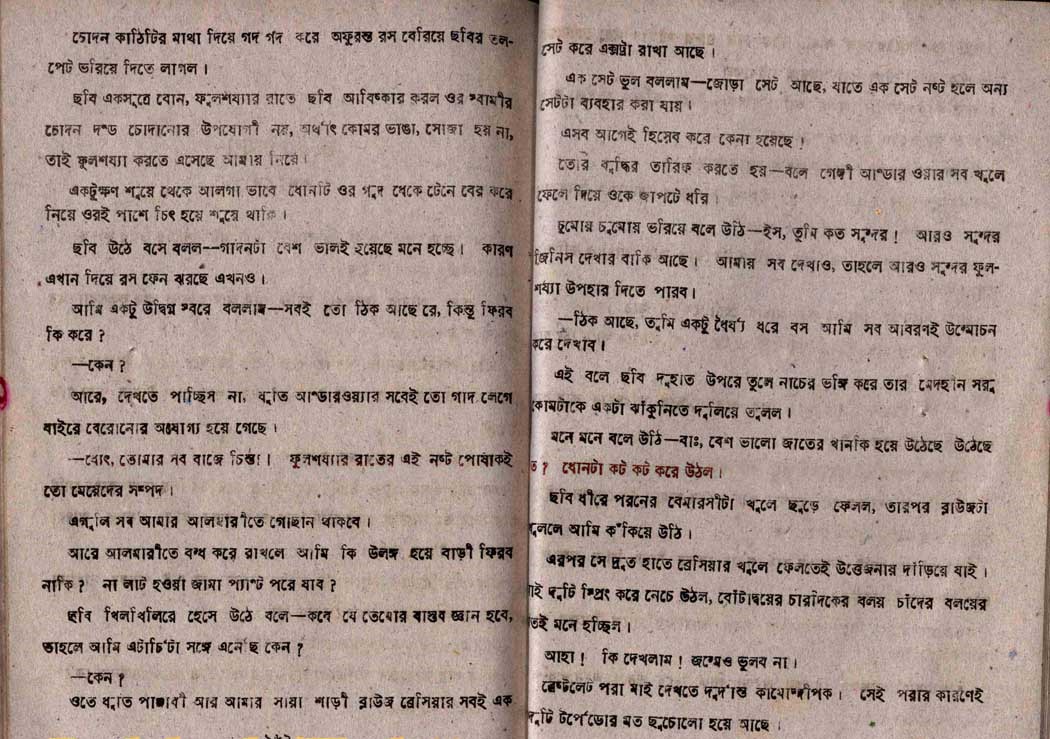 চোদন কাঠিটির মাথা দিয়ে গদ গদ করে অফুরন্ত রস বেরিয়ে ছবির তল-
পেট ভরিয়ে দিতে লাগল।
ছবি একসূত্রে বোন, ফুলশয্যার রাতে ছবি আবিষ্কার করল ওর স্বামীর
চোদন দন্ড চোদানোর উপযোগী নয়, অর্থাৎ কোমর ভাঙা, সোজা হয় না,
তাই ফুলশয্যা করতে এসেছে আমায় নিয়ে।
একটুক্ষণ শুয়ে থেকে আলগা ভাবে ধোনটি ওর গুদ থেকে টেনে বের করে
নিয়ে ওরই পাশে চিৎ হয়ে শুয়ে থাকি।
ছবি উঠে বসে বলল--গাদনটা বেশ ভালই হয়েছে মনে হচ্ছে। কারণ
এখান দিয়ে রস ফেন ঝরছে এখনও।
আমি একটু উদ্বিগ্ন স্বরে বললাম—সবই তো ঠিক আছে রে, কিন্তু ফিরব
কি করে?
—কেন?
আরে, দেখতে পাচ্ছিস না, ধুতি আন্ডারওয়্যার সবেই তো গাদ লেগে
বাইরে বেরোনোর অযোগ্য হয়ে গেছে।
—ধোৎ, তোমার সব বাজে চিন্তা। ফুলশয্যার রাতের এই নষ্ট পোষাকই
তো মেয়েদের সম্পদ।
এগুলি সব আমার আলমারীতে গোছান থাকবে।
আরে আলমারীতে বন্ধ করে রাখলে আমি কি উলঙ্গ হয়ে বাড়ী ফিরব
নাকি? না লাট হওয়া জামা প্যান্ট পরে যাব?
ছবি খিলখিলিয়ে হেসে উঠে বলে—কবে যে তোমার বাস্তব জ্ঞান হবে,
তাহলে আমি এটাচিটা সঙ্গে এনেছি কেন?
—কেন?
ওতে ধুতি পাঞ্জাবী আর আমার সায়া শাড়ী ব্লাউজ ব্রেসিয়ার সবই এক
সেট করে এক্সট্রা রাখা আছে।
এক সেট ভুল বললাম—জোড়া সেট আছে, যাতে এক সেট নষ্ট হলে অন্য
সেটটা ব্যবহার করা যায়।
এসব আগেই হিসেব করে কেনা হয়েছে!
তোর বুদ্ধির তারিফ করতে হয়—বলে গেঞ্জী আন্ডার ওয়ার সব খুলে
ফেলে দিয়ে ওকে জাপটে ধরি।
চুমোয় চুমোয় ভরিয়ে বলে উঠি—ইস, তুমি কত সুন্দর! আরও সুন্দর
জিনিস দেখার বাকি আছে। আমায় সব দেখাও, তাহলে আরও সুন্দর ফুল-
শয্যা উপহার দিতে পারব।
—ঠিক আছে, তুমি একটু ধৈর্য্য ধরে বস আমি সব আবরণই উন্মোচন
করে দেখাব।
এই বলে ছবি দুহাত উপরে তুলে নাচের ভঙ্গি করে তার মেদহীন সরু
কোমটাকে একটা ঝাঁকুনিতে দুলিয়ে তুলল।
মনে মনে বলে উঠি—বাঃ, বেশ ভালো জাতের খানকি হয়ে উঠেছে উঠেছে
ত? ধোনটা কট কট করে উঠল।
ছবি ধীরে পরনের বেনারসীটা খুলে ছুড়ে ফেলল, তারপর ব্লাউজটা
খুললে আমি কঁকিয়ে উঠি।
এরপর সে দ্রুত হাতে ব্রেসিয়ার খুলে ফেলতেই উত্তেজনায় দাঁড়িয়ে যাই।
মাই দুটি স্প্রিং করে নেচে উঠল, বোঁটাদ্বয়ের চারদিকের বলয় চাঁদের বলয়ের
মতই মনে হচ্ছিল।
আহা! কি দেখলাম! জন্মেও ভুলব না।
পরা মাই দেখতে দুর্দান্ত কামোদ্দীপক। সেই পরার কারণেই
দুটি টর্পেডোর মত ছুচোলো হয়ে আছে।